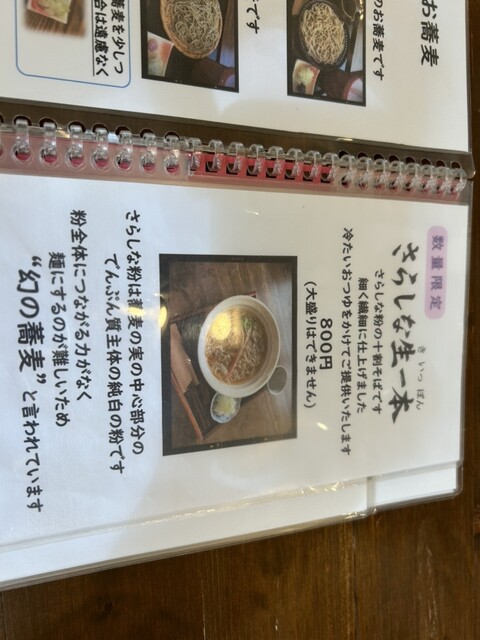 お蕎麦
のお蕎麦です
です
蕎麦を少しつ
合は遠慮なく
数量限定
さらしな生一本
き いっ ぽん
さらしな粉の十割そばです
細く繊細に仕上げました
冷たいおつゆをかけてご提供いたします
800円
(大盛りはできません)
さらしな粉は蕎麦の実の中心部分の
でんぷん質主体の純白の粉です
粉全体につながる力がなく
麺にするのが難しいため
“幻の蕎麦”と言われています